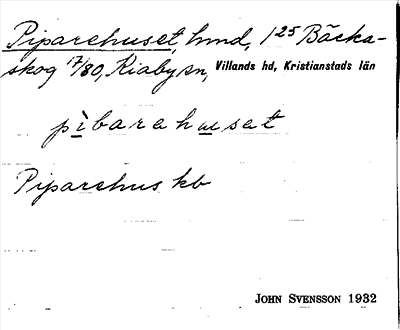 Piparehuset, hmd, 1²⁵ Bäcka-
skog 17/80, Kiaby sn, Villands hd, Kristianstads län
pìbarehusat
Piparehus kb
JOHN SVENSSON 1932